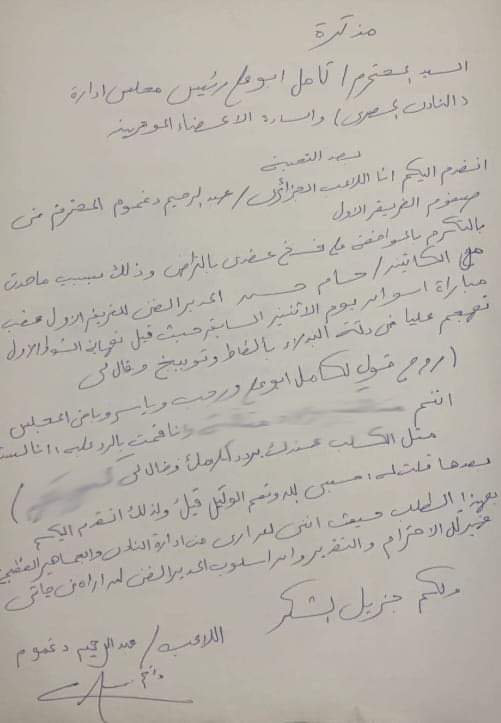 مذكرة
السيد المحترم / كامل ابو علي رئيس مجلس ادارة
(النادي المصري) والسادة الاعضاء الموقرين
بعد التحية
اتقدم اليكم انا اللاعب الجزائري / عبد الرحيم دغموم المحترف في
صفوف الفريق الاول
بالتكرم بالموافقة على فسخ عقدي بالتراضي وذلك بسبب ماحدث
مع الكابتن / حسام حسن المدير الفني للفريق الاول عقب
مباراة اسوان يوم الاثنين السابق حيث قبل نهاية الشوط الاول
تهجم عليا في دكة البدلاء بألفاظ وتوبيخ وقال لي
(روح قول لكامل ابو علي ورجب وياسر وباقي المجلس
انتم وقمت بالرد عليه: انا لست
مثل الكلب عندك يردد كلامك وقال لي )
بعدها قلت له: حسبي الله ونعم الوكيل فيك ولذلك اتقدم اليكم
بهذا الطلب حيث انني لم ارى من ادارة النادي والجماهير العظيمة
غير كل الاحترام والتقدير وان اسلوب المدير الفني لم اراه في حياتي
ولكم جزيل الشكر
اللاعب / عبد الرحيم دغموم